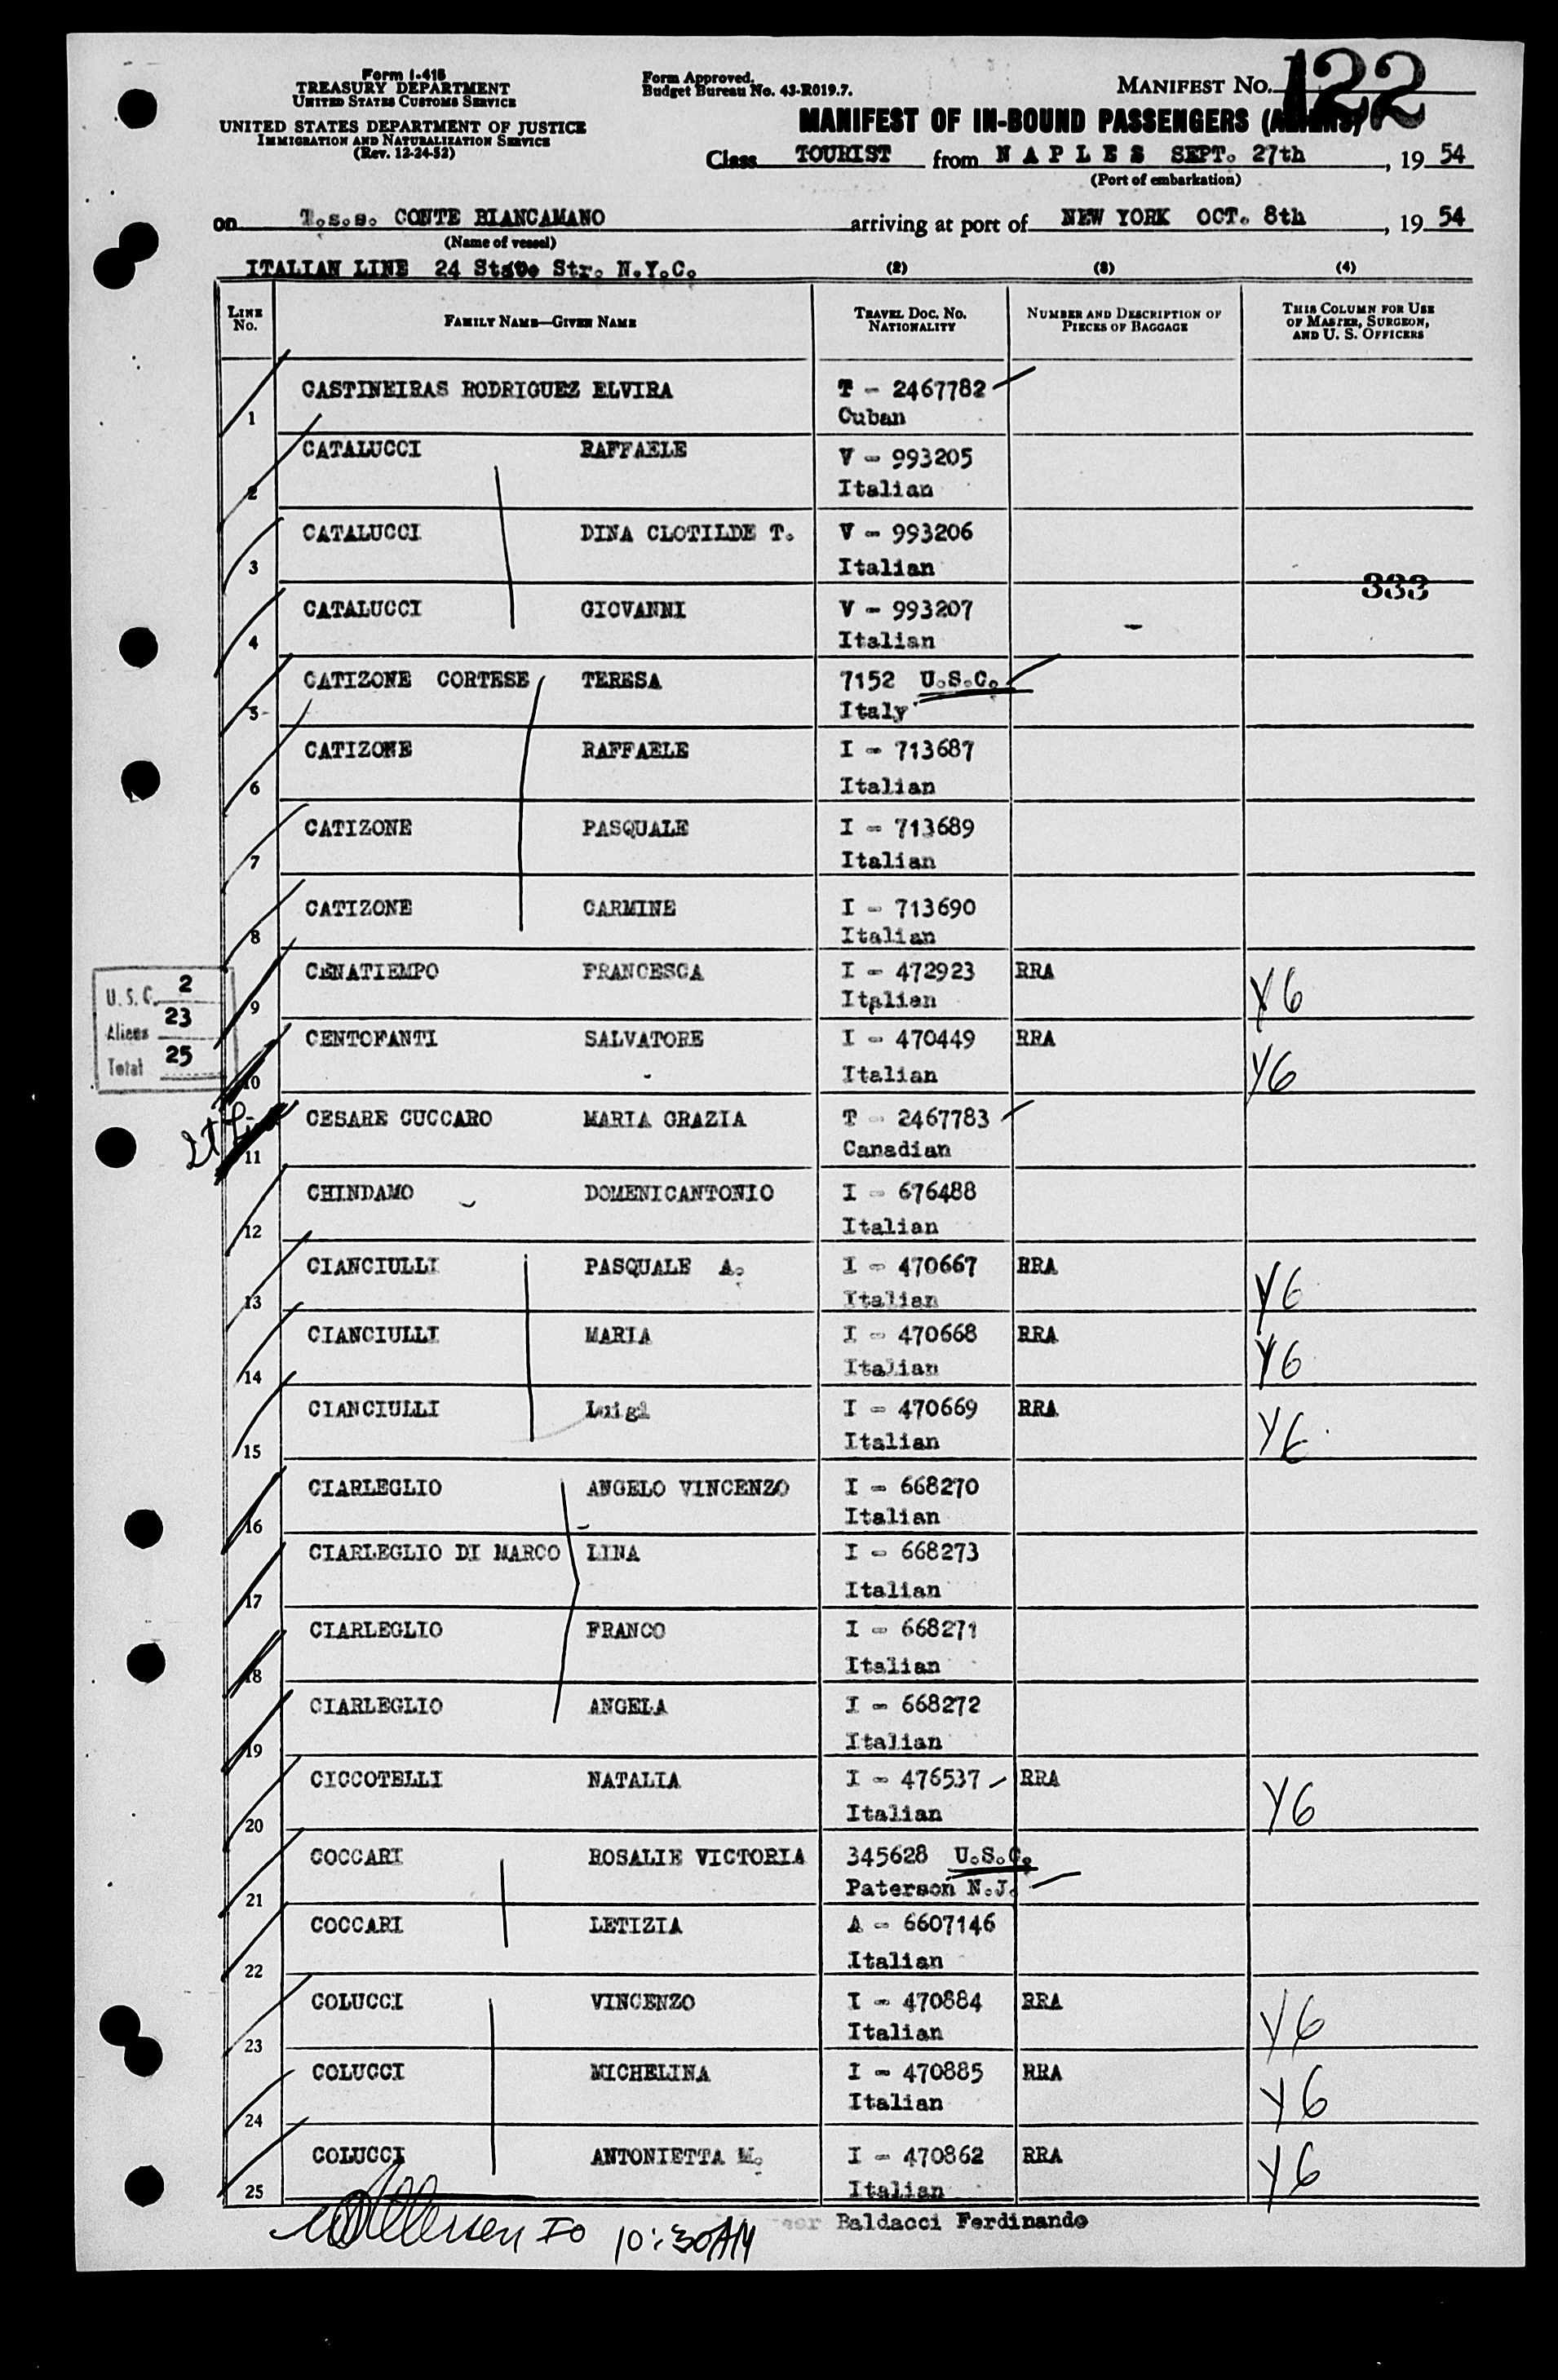 Form I-418
TREASURY DEPARTMENT
UNITED STATES CUSTOMS SERVICE
UNITED STATES DEPARTMENT OF JUSTICE
IMMIGRATION AND NATURALIZATION SERVICE
(Rev. 12-24-52)
Form Approved.
Budget Bureau No. 43-R019.7.
MANIFEST NO. 122
MANIFEST OF IN-BOUND PASSENGERS (ALIENS)
Class TOURIST from NAPLES SEPT. 27th, 19 54
(Port of embarkation)
on T.s.s. CONTE BIANCAMANO arriving at port of NEW YORK OCT. 8th, 19 54
(Name of vessel)
ITALIAN LINE 24 State Str. N.Y.C. (2) (3) (4)
LINE No. FAMILY NAME—GIVEN NAME TRAVEL DOC. NO. NATIONALITY NUMBER AND DESCRIPTION OF PIECES OF BAGGAGE THIS COLUMN FOR USE OF MASTER, SURGEON, AND U. S. OFFICERS
1 CASTINEIRAS RODRIGUEZ ELVIRA T - 2467782
Cuban
2 CATALUCCI RAFFAELE V - 993205
Italian
3 CATALUCCI DINA CLOTILDE T. V - 993206
Italian
333
4 CATALUCCI GIOVANNI V - 993207
Italian
5 CATIZONE CORTESE TERESA 7152 U.S.C.
Italy
6 CATIZONE RAFFAELE I - 713687
Italian
7 CATIZONE PASQUALE I - 713689
Italian
8 CATIZONE CARMINE I - 713690
Italian
9 CENATIEMPO FRANCESCA I - 472923 RRA Y6
Italian
U. S. C. 2
Aliens 23
Total 25
10 CENTOFANTI SALVATORE I - 470449 RRA Y6
Italian
11 CESARE CUCCARO MARIA GRAZIA T - 2467783
Canadian
12 CHINDAMO DOMENICANTONIO I - 676488
Italian
13 CIANCIULLI PASQUALE A. I - 470667 RRA Y6
Italian
14 CIANCIULLI MARIA I - 470668 RRA Y6
Italian
15 CIANCIULLI Luigi I - 470669 RRA Y6
Italian
16 CIARLEGLIO ANGELO VINCENZO I - 668270
Italian
17 CIARLEGLIO DI MARCO LINA I - 668273
Italian
18 CIARLEGLIO FRANCO I - 668271
Italian
19 CIARLEGLIO ANGELA I - 668272
Italian
20 CICCOTELLI NATALIA I - 476537 RRA Y6
Italian
21 COCCARI ROSALIE VICTORIA 345628 U.S.C.
Paterson N.J.
22 COCCARI LETIZIA A - 6607146
Italian
23 COLUCCI VINCENZO I - 470884 RRA Y6
Italian
24 COLUCCI MICHELINA I - 470885 RRA Y6
Italian
25 COLUCCI ANTONIETTA M. I - 470862 RRA Y6
Italian
Baldacci Ferdinando
10:30AM